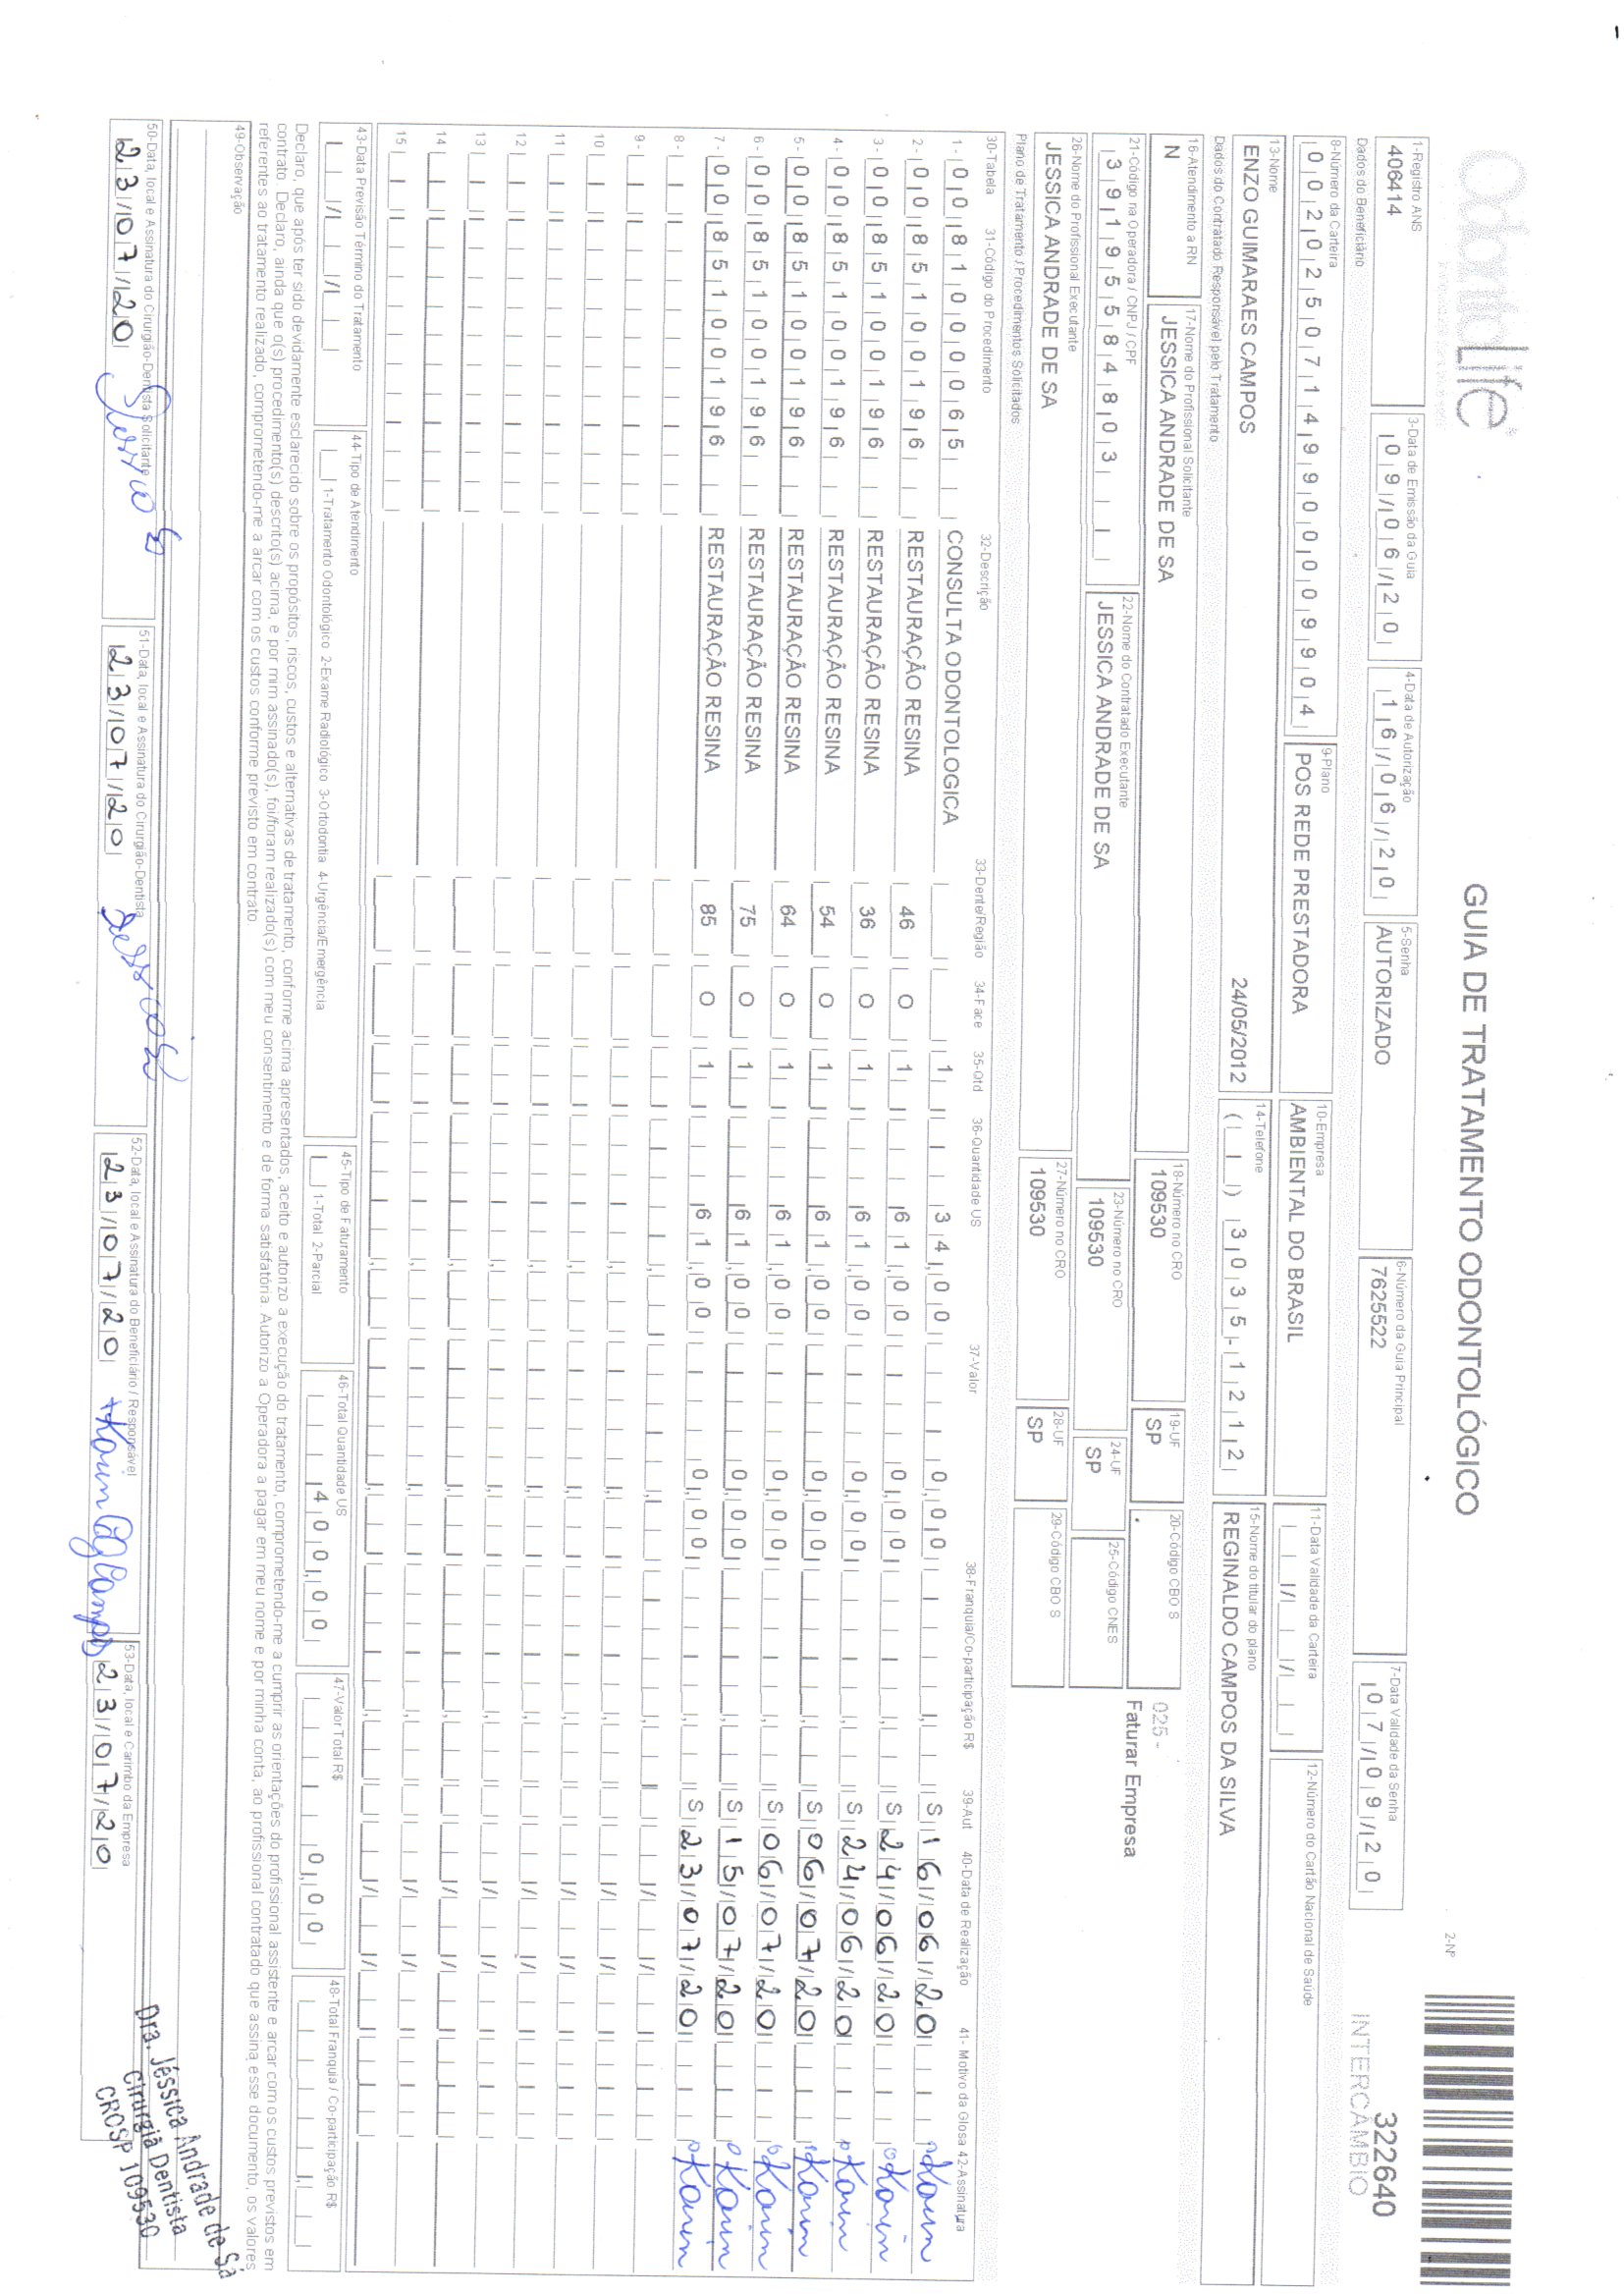 OdontoLife
GUIA DE TRATAMENTO ODONTOLÓGICO
2-Nº
322640
INTERCÂMBIO
1-Registro ANS
406414
3-Data de Emissão da Guia
09/06/20
4-Data de Autorização
16/06/20
5-Senha
AUTORIZADO
6-Número da Guia Principal
7625522
7-Data Validade da Senha
07/09/20
Dados do Beneficiário
8-Número da Carteira
00202507149900009904
9-Plano
POS REDE PRESTADORA
10-Empresa
AMBIENTAL DO BRASIL
11-Data Validade da Carteira
12-Número do Cartão Nacional de Saúde
13-Nome
ENZO GUIMARAES CAMPOS
24/05/2012
14-Telefone
( ) 3035-1212
15-Nome do titular do plano
REGINALDO CAMPOS DA SILVA
Dados do Contratado Responsável pelo Tratamento
16-Atendimento a RN
N
17-Nome do Profissional Solicitante
JESSICA ANDRADE DE SA
18-Número no CRO
109530
19-UF
SP
20-Código CBO S
025 -
Faturar Empresa
21-Código na Operadora / CNPJ / CPF
39195584803
22-Nome do Contratado Executante
JESSICA ANDRADE DE SA
23-Número no CRO
109530
24-UF
SP
25-Código CNES
26-Nome do Profissional Executante
JESSICA ANDRADE DE SA
27-Número no CRO
109530
28-UF
SP
29-Código CBO S
Plano de Tratamento / Procedimentos Solicitados
30-Tabela 31-Código do Procedimento 32-Descrição 33-Dente/Região 34-Face 35-Qtd 36-Quantidade US 37-Valor 38-Franquia/Co-participação R$ 39-Aut 40-Data de Realização 41- Motivo da Glosa 42-Assinatura
1- 00 81000065 CONSULTA ODONTOLOGICA 1 34,00 0,00 S 16/06/20 Karin
2- 00 85100196 RESTAURAÇÃO RESINA 46 O 1 61,00 0,00 S 24/06/20 Karin
3- 00 85100196 RESTAURAÇÃO RESINA 36 O 1 61,00 0,00 S 24/06/20 Karin
4- 00 85100196 RESTAURAÇÃO RESINA 54 O 1 61,00 0,00 S 06/07/20 Karin
5- 00 85100196 RESTAURAÇÃO RESINA 64 O 1 61,00 0,00 S 06/07/20 Karin
6- 00 85100196 RESTAURAÇÃO RESINA 75 O 1 61,00 0,00 S 15/07/20 Karin
7- 00 85100196 RESTAURAÇÃO RESINA 85 O 1 61,00 0,00 S 23/07/20 Karin
8-
9-
10
11
12
13
14
15
43-Data Previsão Término do Tratamento
44-Tipo de Atendimento
1-Tratamento Odontológico 2-Exame Radiológico 3-Ortodontia 4-Urgência/Emergência
45-Tipo de Faturamento
1-Total 2-Parcial
46-Total Quantidade US
400,00
47-Valor Total R$
0,00
48-Total Franquia / Co-participação R$
Declaro, que após ter sido devidamente esclarecido sobre os propósitos, riscos, custos e alternativas de tratamento, conforme acima apresentados, aceito e autorizo a execução do tratamento, comprometendo-me a cumprir as orientações do profissional assistente e arcar com os custos previstos em
contrato. Declaro, ainda que o(s) procedimento(s) descrito(s) acima, e por mim assinado(s), foi/foram realizado(s) com meu consentimento e de forma satisfatória. Autorizo a Operadora a pagar em meu nome e por minha conta, ao profissional contratado que assina esse documento, os valores
referentes ao tratamento realizado, comprometendo-me a arcar com os custos conforme previsto em contrato.
49-Observação
50-Data, local e Assinatura do Cirurgião-Dentista Solicitante
23/07/20
51-Data, local e Assinatura do Cirurgião-Dentista
23/07/20
52-Data, local e Assinatura do Beneficiário / Responsável
23/07/20 Karin G Campos
53-Data, local e Carimbo da Empresa
23/07/20
Dra. Jéssica Andrade de Sá
Cirurgiã Dentista
CROSP 109530